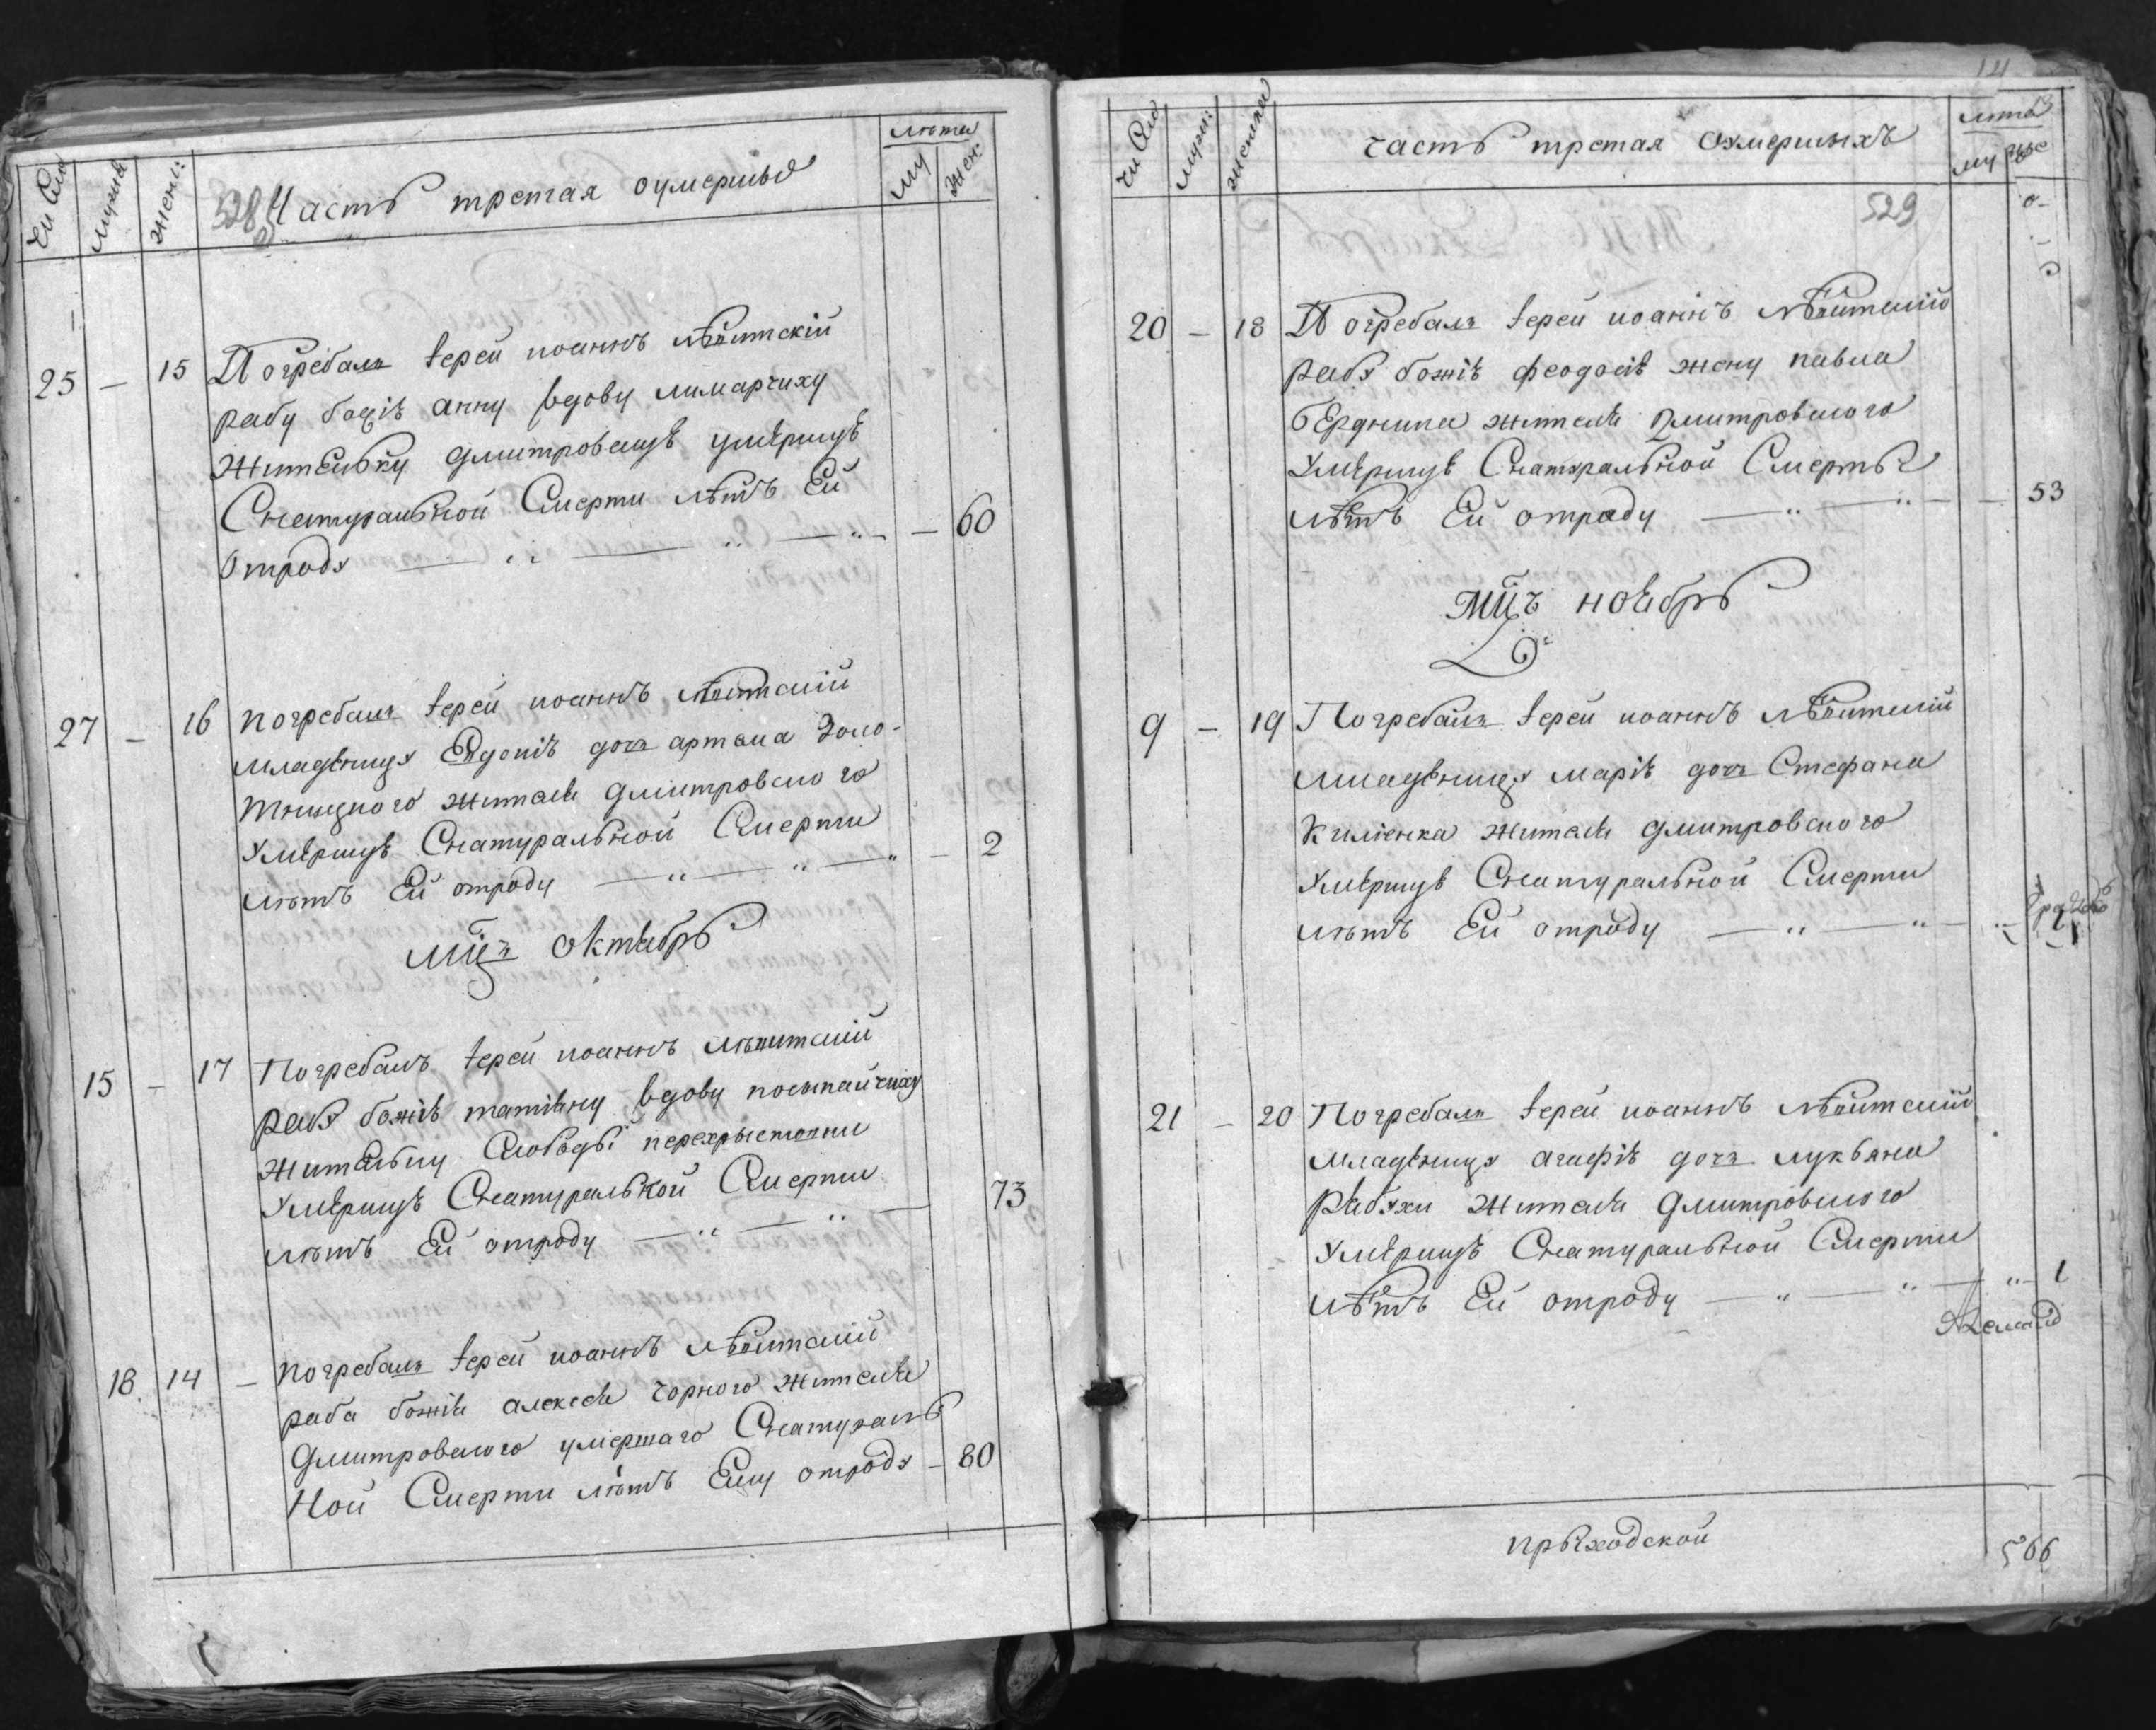 Чи Сло
мужа
жені:
528
Часть третая оумершыхъ
лѣта
му
жен:
25 — 15 Погребалъ іерей иоаннъ лѣпитскій
рабу божіѣ анну вдову лимарчиху
жителку дмитровскую умѣршую
Снатуральной Смерти лѣтъ Ей
отроду — 60
27 — 16 погребалъ іерей иоаннъ лѣпитскій
младѣницу Євдокіѣ дочь артема Золо-
тницкого жителя дмитровского
умѣршую Снатуральной Смерти
лѣтъ Ей отроду — 2
мцъ октябрь
15 — 17 Погребалъ іерей иоаннъ лѣпитскій
рабу божіѣ татіяну вдову
жителку Слободы
умѣршую Снатуральной Смерти
лѣтъ Ей отроду — 73
18 14 — погребалъ іерей иоаннъ лѣпитскій
раба божія алексея чорного жителя
Дмитровского умершаго Снатураль
Ной Смерти лѣтъ Ему отроду — 80
Чи Сло
мужи:
женска
часть третая оумершыхъ
лѣта
му
же
529
20 — 18 Погребалъ іерей иоаннъ лѣпитскій
рабу божіѣ феодосіѣ жену павла
бЕрдника жителя Дмитровского
умѣршую Снатуральной Смерты
лѣтъ Ей отроду — 53
мцъ ноябрь
9 — 19 Погребалъ іерей иоаннъ лѣпитскій
младѣницу маріѣ дочь Стефана
Киліенка жителя дмитровского
умѣршую Снатуральной Смерти
лѣтъ Ей отроду —
21 — 20 Погребалъ іерей иоаннъ лѣпитскій
младѣницу агафіѣ дочь лукьяна
Рябухи жителя Дмитровского
умѣршую Снатуральной Смерти
лѣтъ Ей отроду — 1
прыходской
566